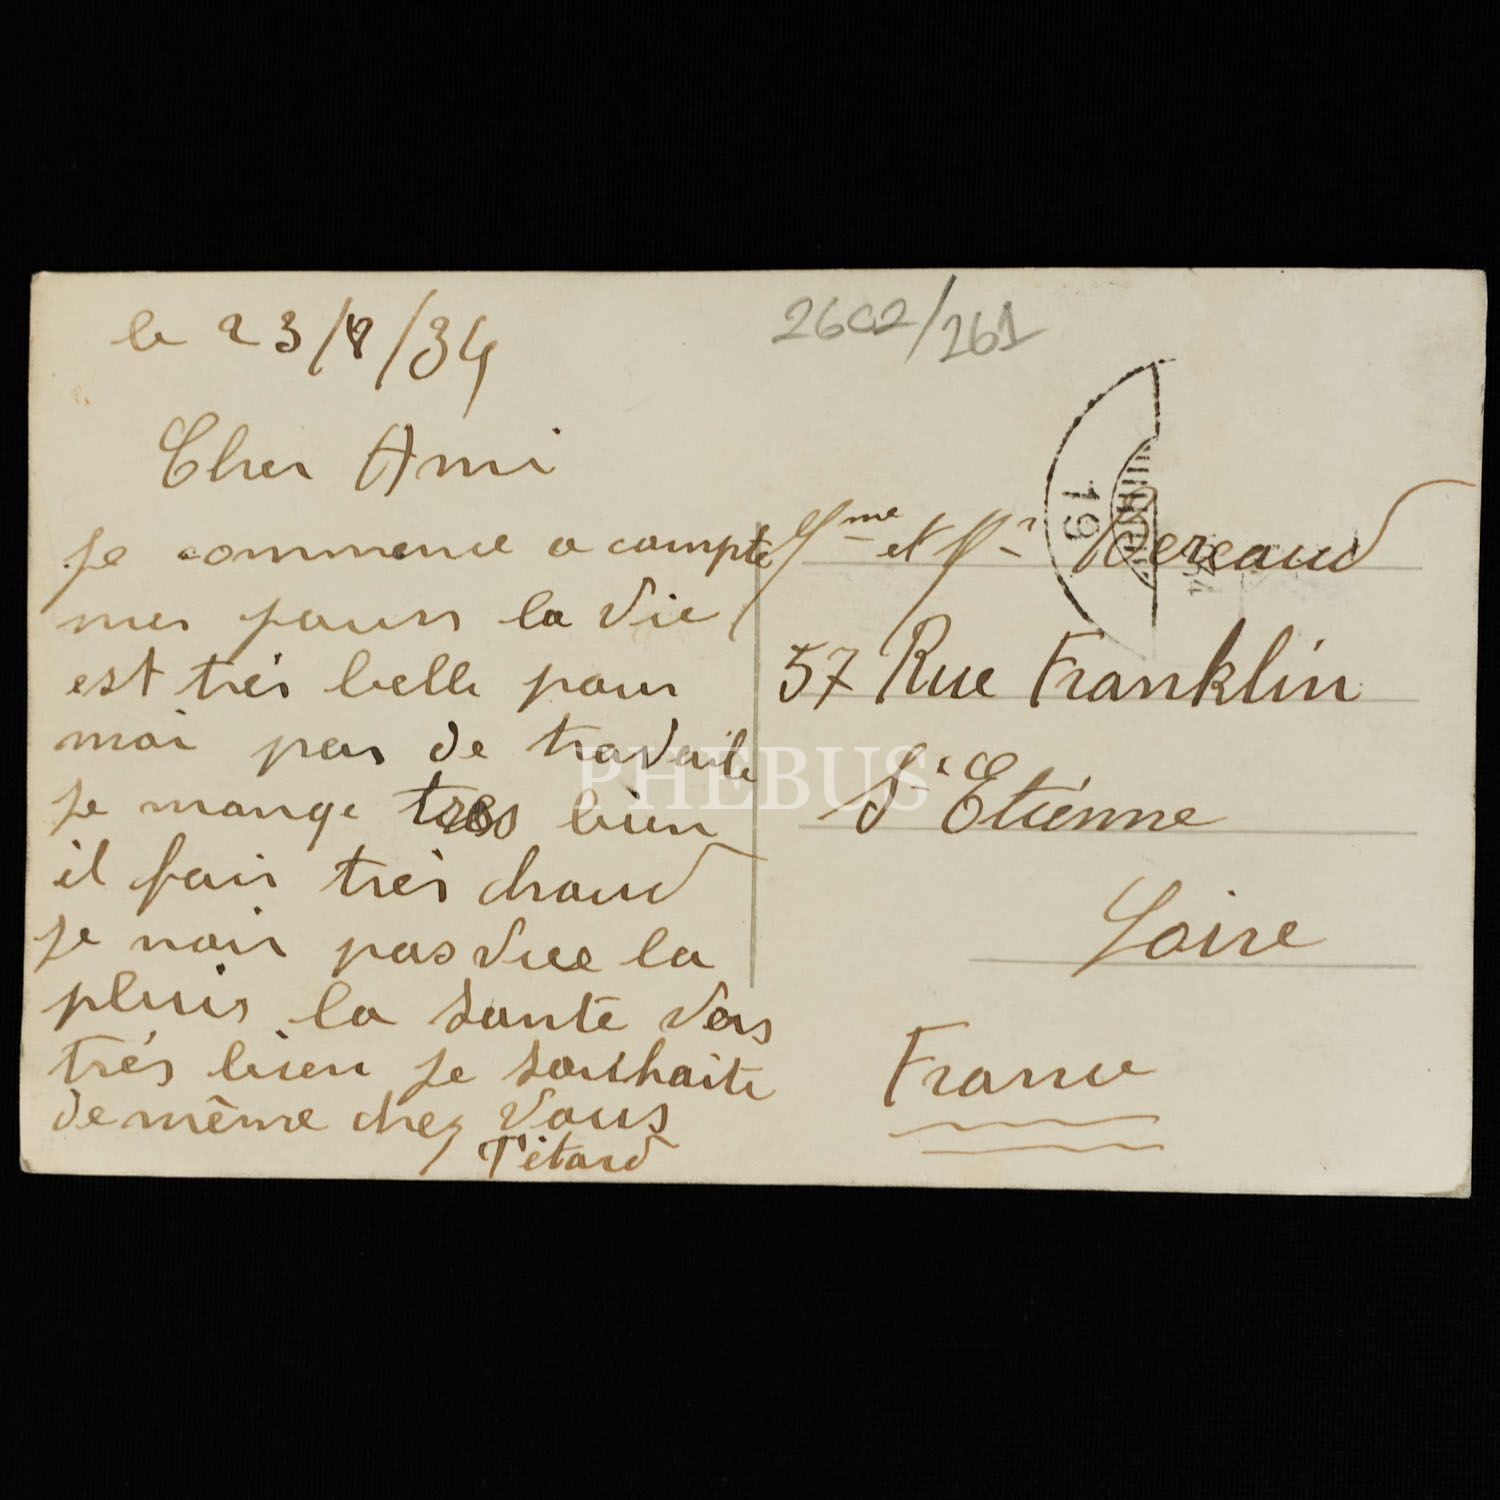 le 23/8/34
2602/261
Cher Ami
je commence a compte
mes jours la vie
est très belle pour
moi pas de travaile
je mange tres bien
il fais très chaud
je nais pas vue la
pluis la sante vas
très bien je souhaite
de même chez vous
Tétard
19
Mme et Mr Dereaud
57 Rue Franklin
St Etienne
Loire
France
PHEBUS